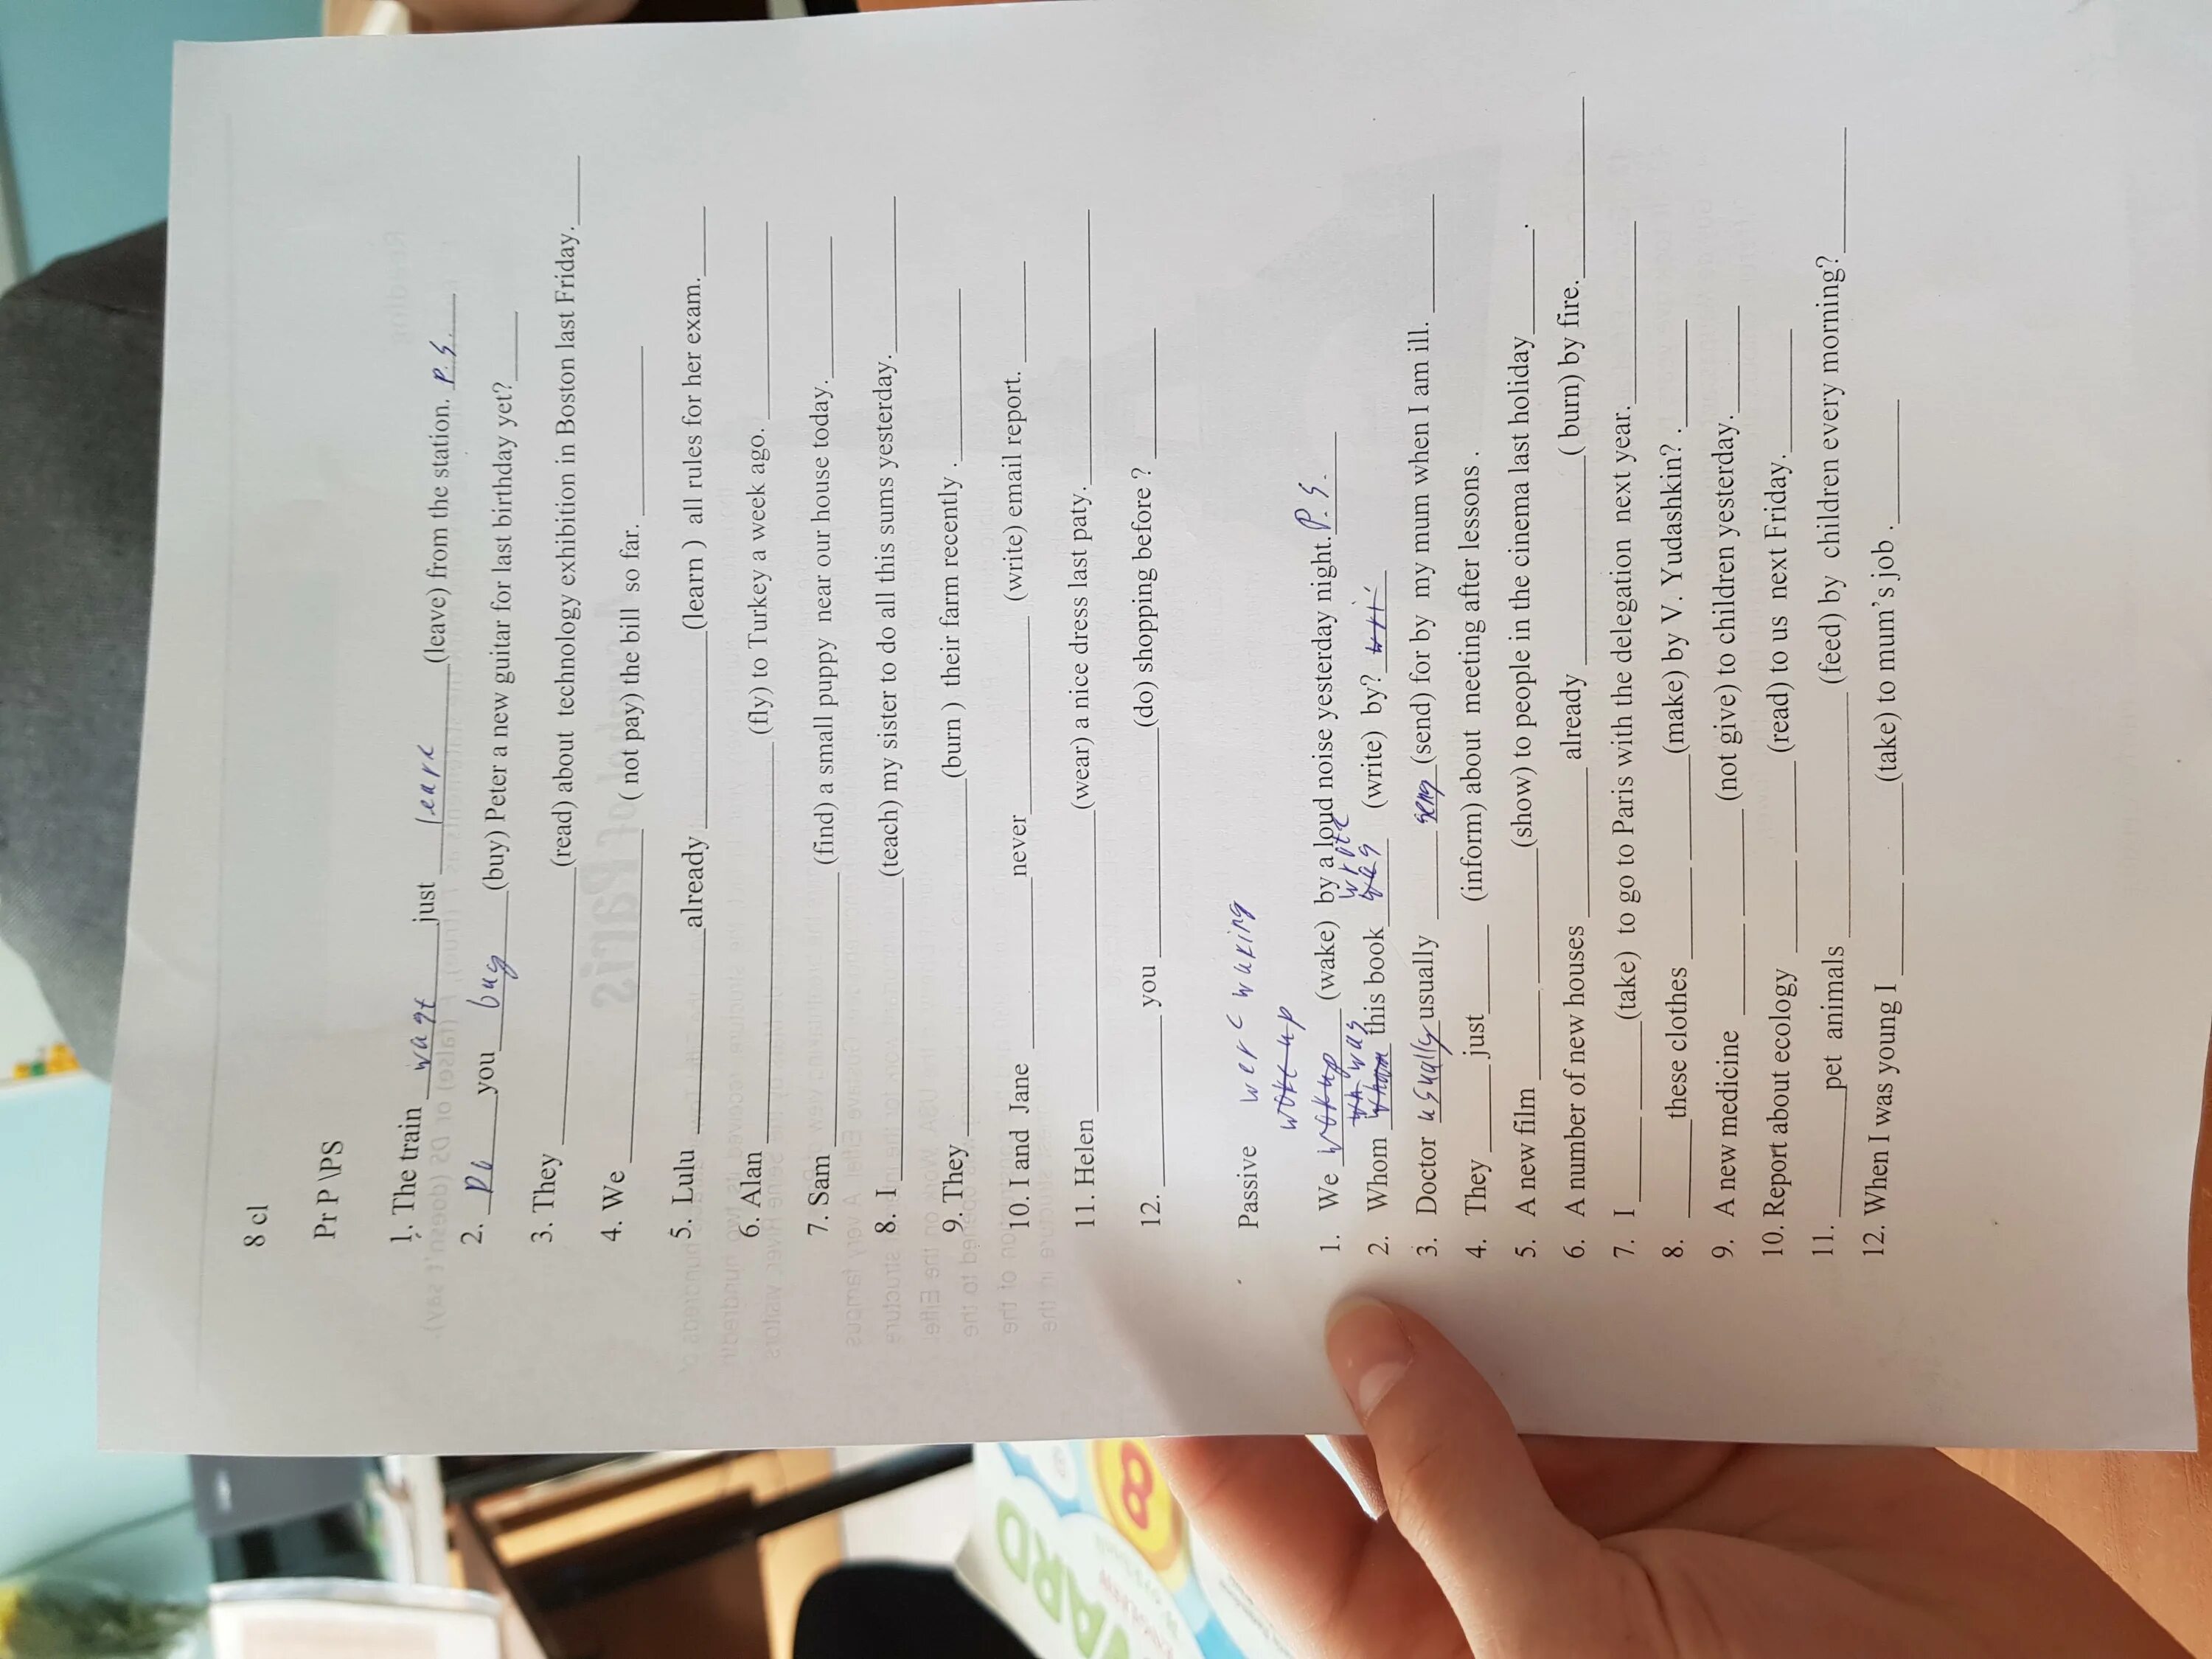 8 cl
Pr P \PS
1. The train ______ just leave (leave) from the station. P.S.
2. ______ you buy (buy) Peter a new guitar for last birthday yet? ____
3. They ______ (read) about technology exhibition in Boston last Friday. ____
4. We ______ ( not pay) the bill so far. ______
5. Lulu ______ already ______ (learn ) all rules for her exam. ____
6. Alan ______ (fly) to Turkey a week ago. ______
7. Sam ______ (find) a small puppy near our house today. ______
8. I ______ (teach) my sister to do all this sums yesterday. ______
9. They ______ (burn ) their farm recently . ______
10. I and Jane ______ never ______ (write) email report. ______
11. Helen ______ (wear) a nice dress last paty. ______
12. ______ you ______ (do) shopping before ? ______
Passive were waking
woke up
1. We wok up (wake) by a loud noise yesterday night. P.S.
was wrote
2. Whom whom this book was (write) by?
3. Doctor usually usually ____ (send) for by my mum when I am ill. ______
4. They ____ just ____ (inform) about meeting after lessons .
5. A new film ____ ____ (show) to people in the cinema last holiday ____ .
6. A number of new houses ______ already ______ ( burn) by fire. ______
7. I ____ ____ (take) to go to Paris with the delegation next year. ______
8. ____ these clothes ____ ____ (make) by V. Yudashkin? . ____
9. A new medicine ____ ____ (not give) to children yesterday. ____
10. Report about ecology ____ ____ (read) to us next Friday. ____
11. ____ pet animals ______ (feed) by children every morning? ____
12. When I was young I ____ ____ (take) to mum's job . ____
8